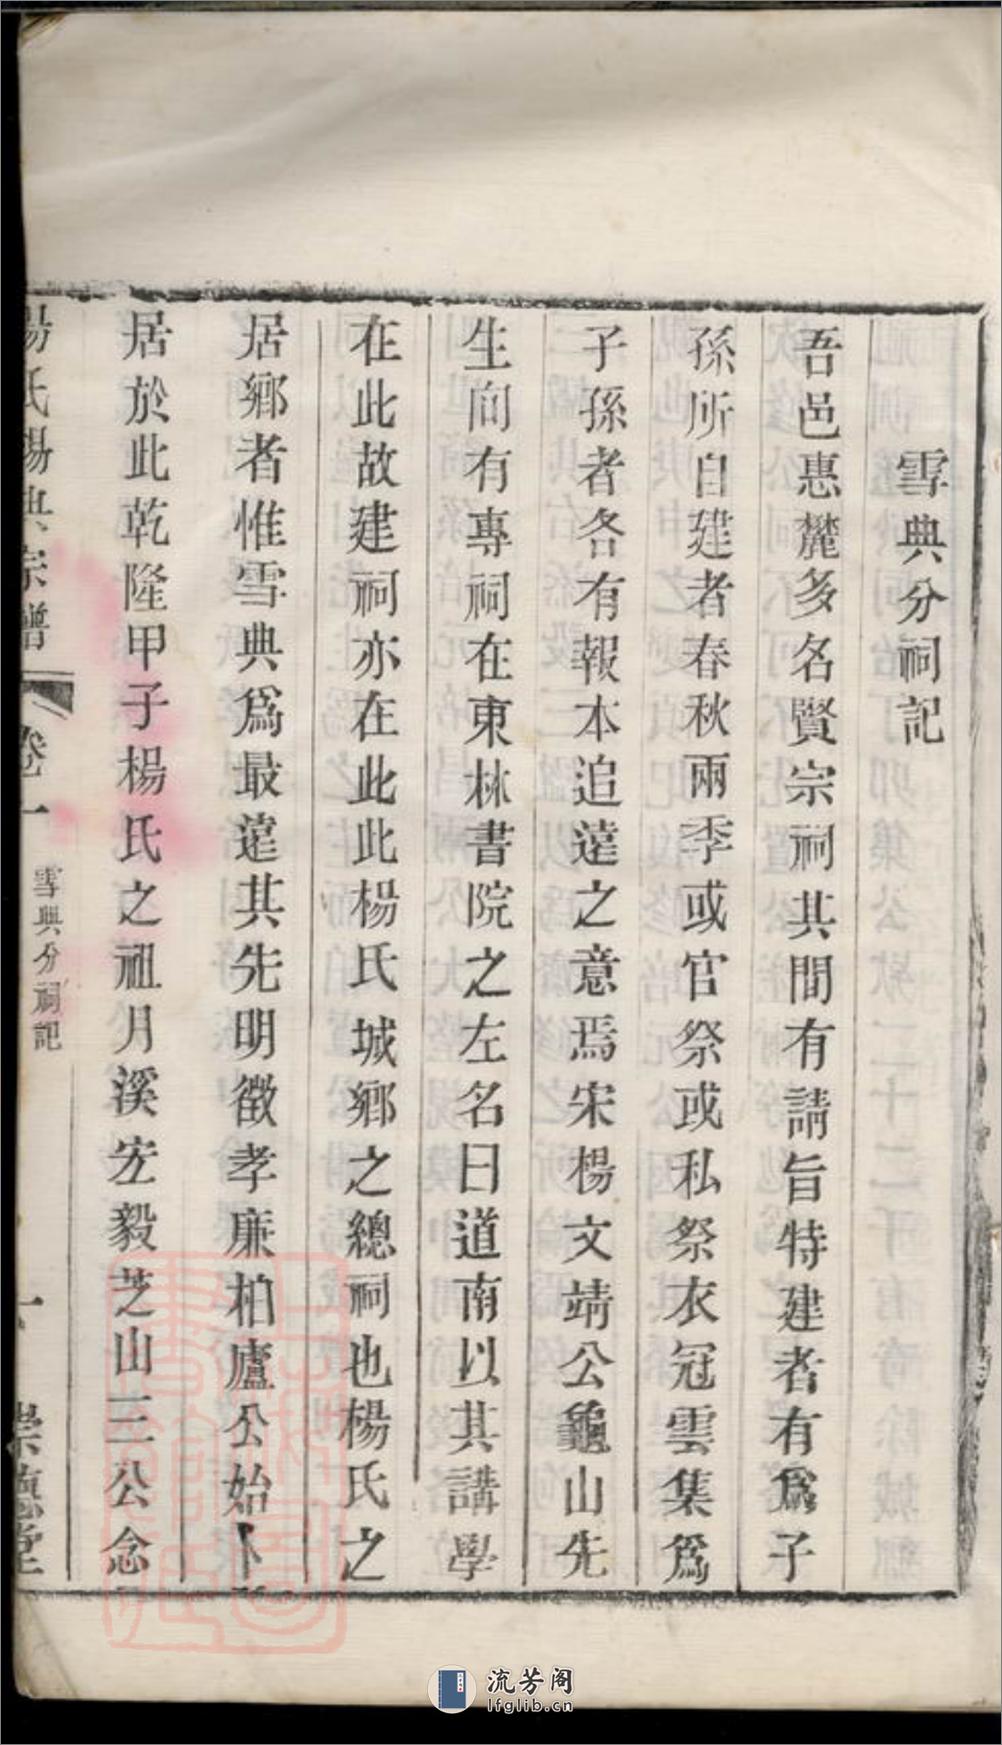 雪典分祠記
吾邑惠麓多名賢宗祠其間有請旨特建者有爲子
孫所自建者春秋兩季或官祭或私祭衣冠雲集爲
子孫者各有報本追遠之意焉宋楊文靖公龜山先
生向有專祠在東林書院之左名曰道南以其講學
在此故建祠亦在此此楊氏城鄉之總祠也楊氏之
居鄉者惟雪典爲最遠其先明徵孝廉柏廬公始卜
居於此乾隆甲子楊氏之祖月溪宏毅芝山三公念
楊氏楊典宗譜
卷一
雪典分祠記
一
崇德堂
流芳阁
lfglib.cn